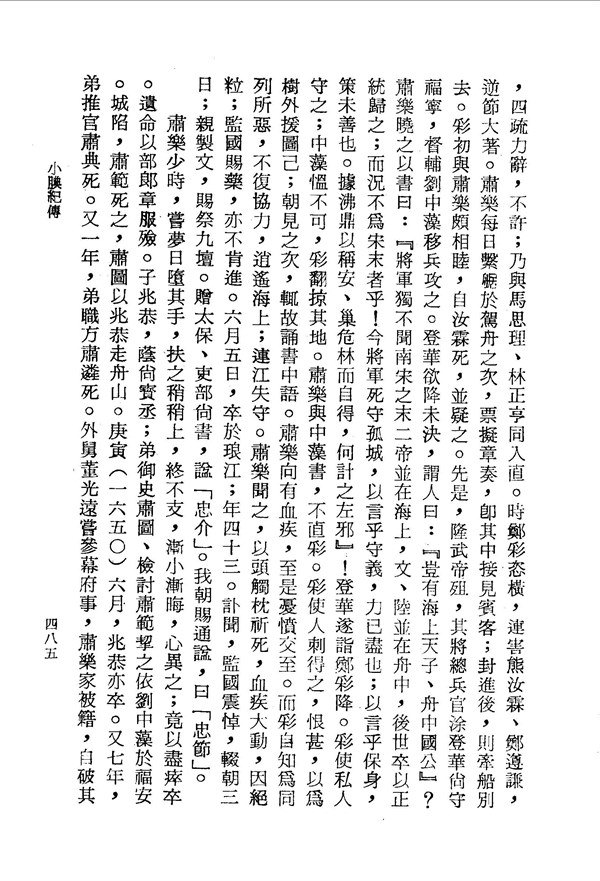 ，四疏力辭，不許；乃與馬思理、林正亨同入直。時鄭彩恣橫，連害熊汝霖、鄭遵謙，
逆節大著。肅樂每日繫艍於駕舟之次，票擬章奏，卽其中接見賓客；封進後，則牽船別
去。彩初與肅樂頗相睦，自汝霖死，並疑之。先是，隆武帝殂，其將總兵官涂登華尙守
福寧，督輔劉中藻移兵攻之。登華欲降未決，謂人曰：『豈有海上天子、舟中國公』？
肅樂曉之以書曰：『將軍獨不聞南宋之末二帝並在海上，文、陸並在舟中，後世卒以正
統歸之；而況不爲宋末者乎！今將軍死守孤城，以言乎守義，力已盡也；以言乎保身，
策未善也。據沸鼎以稱安、巢危林而自得，何計之左邪』！登華遂詣鄭彩降。彩使私人
守之；中藻慍不可，彩翻掠其地。肅樂與中藻書，不直彩。彩使人刺得之，恨甚，以爲
樹外援圖己；朝見之次，輒故誦書中語。肅樂向有血疾，至是憂憤交至。而彩自知爲同
列所惡，不復協力，逍遙海上；連江失守。肅樂聞之，以頭觸枕祈死，血疾大動，因絕
粒；監國賜藥，亦不肯進。六月五日，卒於琅江；年四十三。訃聞，監國震悼，輟朝三
日；親製文，賜祭九壇。贈太保、吏部尙書，諡「忠介」。我朝賜通諡，曰「忠節」。
肅樂少時，嘗夢日墮其手，扶之稍稍上，終不支，漸小漸晦，心異之；竟以盡瘁卒
。遺命以部郎章服殮。子兆恭，蔭尙寶丞；弟御史肅圖、檢討肅範挈之依劉中藻於福安
。城陷，肅範死之，肅圖以兆恭走舟山。庚寅（一六五〇）六月，兆恭亦卒。又七年，
弟推官肅典死。又一年，弟職方肅遴死。外舅董光遠嘗參幕府事，肅樂家被籍，自破其
小腆紀傳
四八五